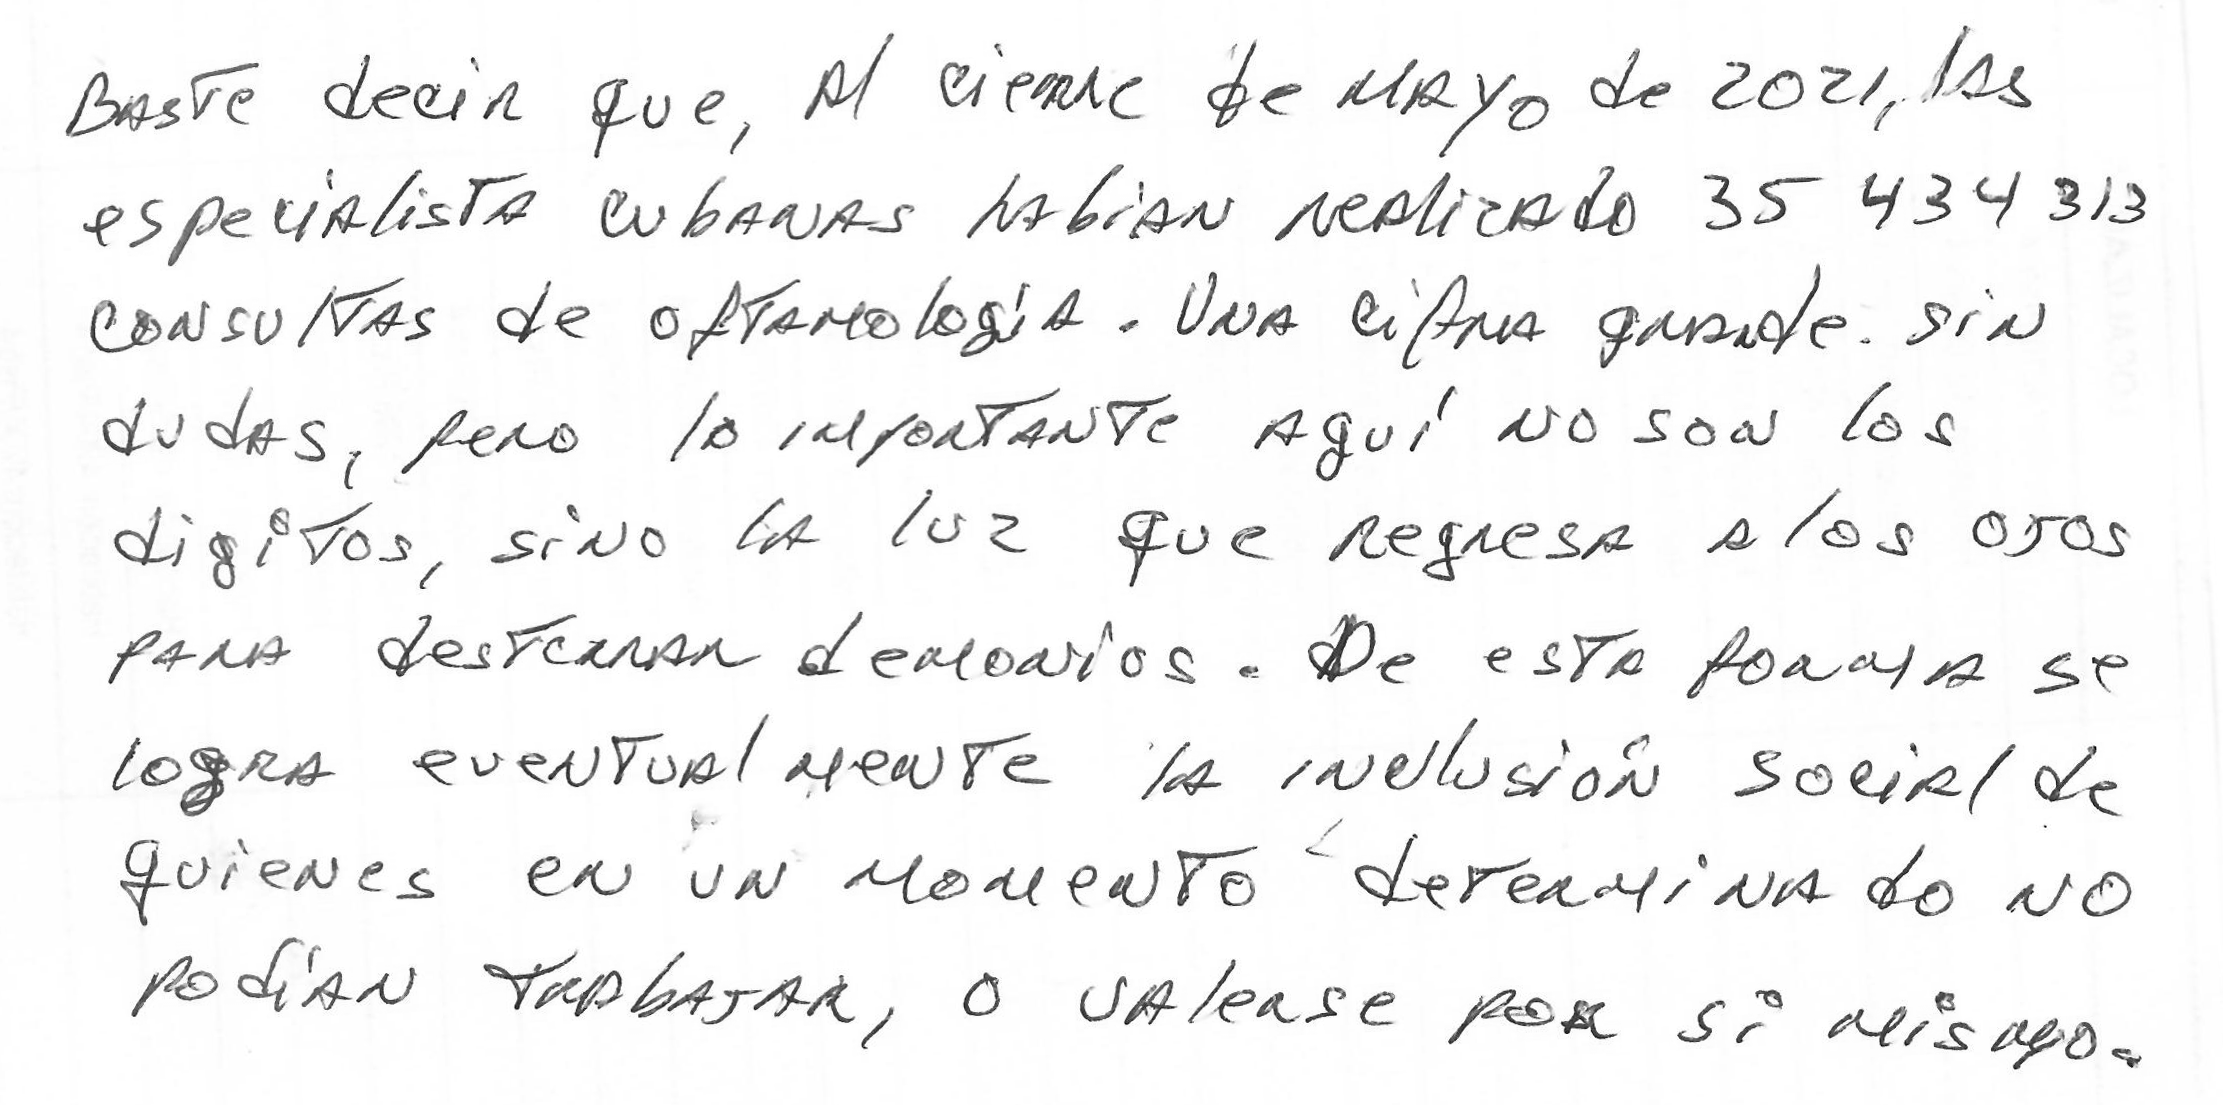 Baste decir que, al cierre de mayo de 2021, las
especialista cubanas habían realizado 35 434 313
consultas de oftamología. Una cifra grande. sin
dudas, pero lo importante aquí no son los
digitos, sino la luz que regresa a los ojos
para desterrar demonios. De esta forma se
logra eventualmente la inclusión social de
quienes en un momento determinado no
podían trabajar, o valerse por si mismo.